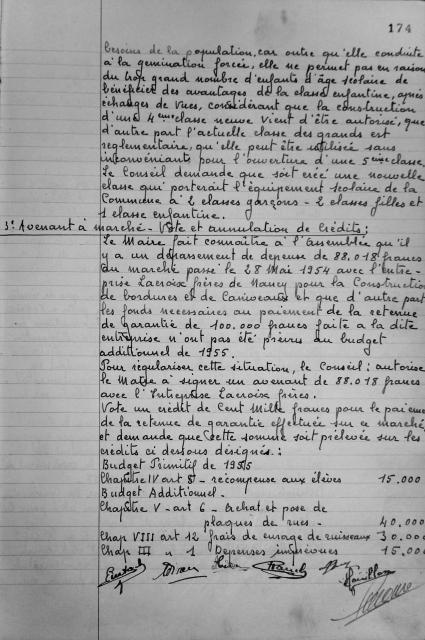 174
besoins de la population, car outre qu'elle conduite
à la gemination forcée, elle ne permet pas en raison
du trop grand nombre d'enfants d'âge scolaire de
bénéficier des avantages de la classe enfantine, après
échanges de vues, considérant que la construction
d'une 4ème classe neuve vient d'être autorisé, que
d'autre part l'actuelle classe des grands est
reglementaire, qu'elle peut être utilisée sans
inconvénients pour l'ouverture d'une 5ème classe.
Le Conseil demande que soit créé une nouvelle
classe qui porterait l'équipement scolaire de la
Commune à 2 classes garçons - 2 classes filles et
1 classe enfantine.
3° Avenant à marché - Vote et annulation de Crédits :
Le Maire fait connaître à l'assemblée qu'il
y a un dépassement de depense de 88.018 francs
du marché passé le 28 Mai 1954 avec l'Entre-
prise Lacroix frères de Nancy pour la Construction
de bordures et de Caniveaux et que d'autre part
les fonds necessaires au paiement de la retenue
de garantie de 100.000 francs faite a la dite
entreprise n'ont pas été prévus au budget
additionnel de 1955.
Pour régulariser cette situation, le Conseil : autorise
le Maire à signer un avenant de 88.018 francs
avec l'Entreprise Lacroix frères.
Vote un crédit de Cent Mille francs pour le paieme
de la retenue de garantie effectuée sur ce marché
et demande que cette somme soit prélevée sur les
crédits ci dessous désignés :
Budget Primitif de 1955
Chapitre IV art 8 - récompense aux élèves 15.000
Budget Additionnel -
Chapitre V - art 6 - Achat et pose de
plaques de rues - 40.000
Chap VIII art 12 frais de curage de ruisseaux 30.000
Chap III n 1 Depenses imprévues 15.000